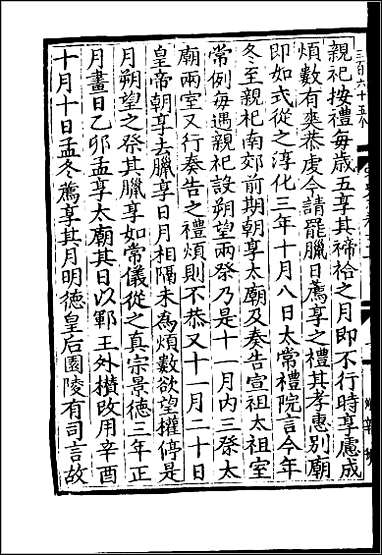 三百六十五
親祀按禮每歲五享其禘祫之月即不行時享慮成
煩數有爽恭虔今請罷臘日薦享之禮其孝惠別廟
即如式從之淳化三年十月八日太常禮院言今年
冬至親祀南郊前期朝享太廟及奏告宣祖太祖室
常例每遇親祀設朔望兩祭乃是十一月內三祭太
廟兩室又行奏告之禮煩則不恭又十一月二十日
皇帝朝享去臘享日月相隔未為煩數欲望權停是
月朔望之祭其臘享如常儀從之真宗景德三年正
月畫日乙卯孟享太廟其日以鄆王外攢改用辛酉
十月十日孟冬薦享其月明德皇后園陵有司言故